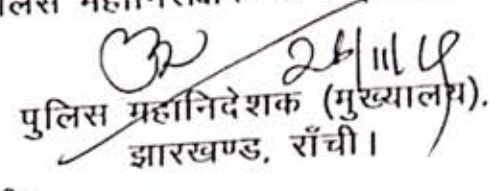 26/11/14
पुलिस महानिदेशक (मुख्यालय).
झारखण्ड, राँची।